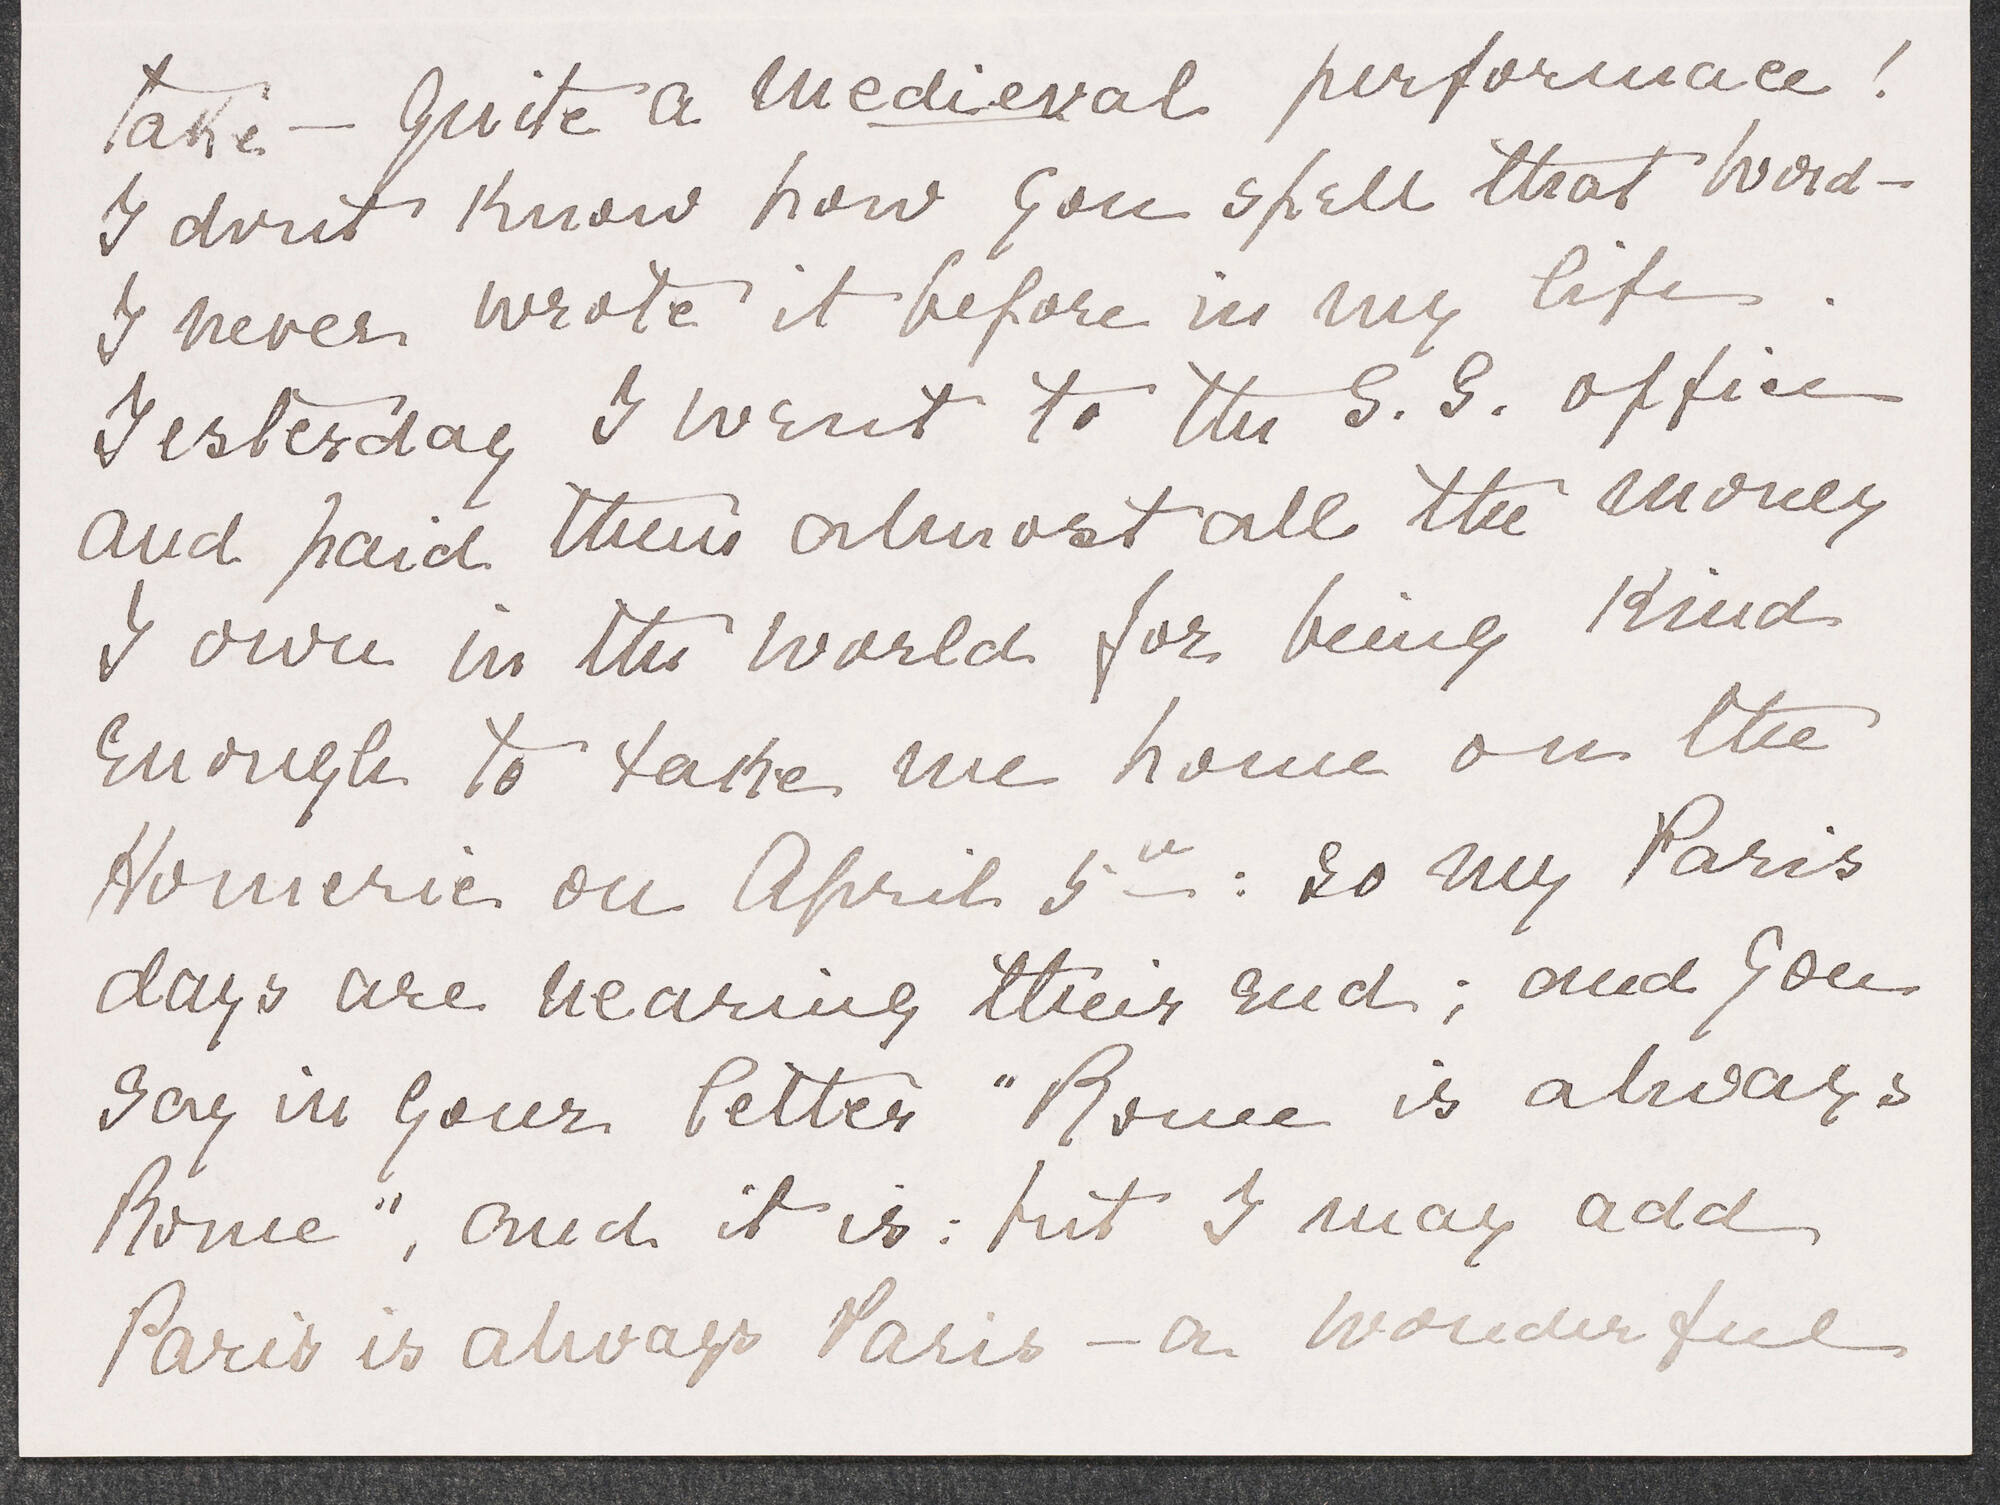 take – Quite a Medieval performace!
I don't know how you spell that word –
I never wrote it before in my life.
Yesterday I went to the S. S. office
and paid them almost all the money
I own in the world for being kind
enough to take me home on the
Homeric on April 5th: so my Paris
days are nearing their end; and you
say in your letter "Rome is always
Rome", and it is: but I may add
Paris is always Paris – a wonderful